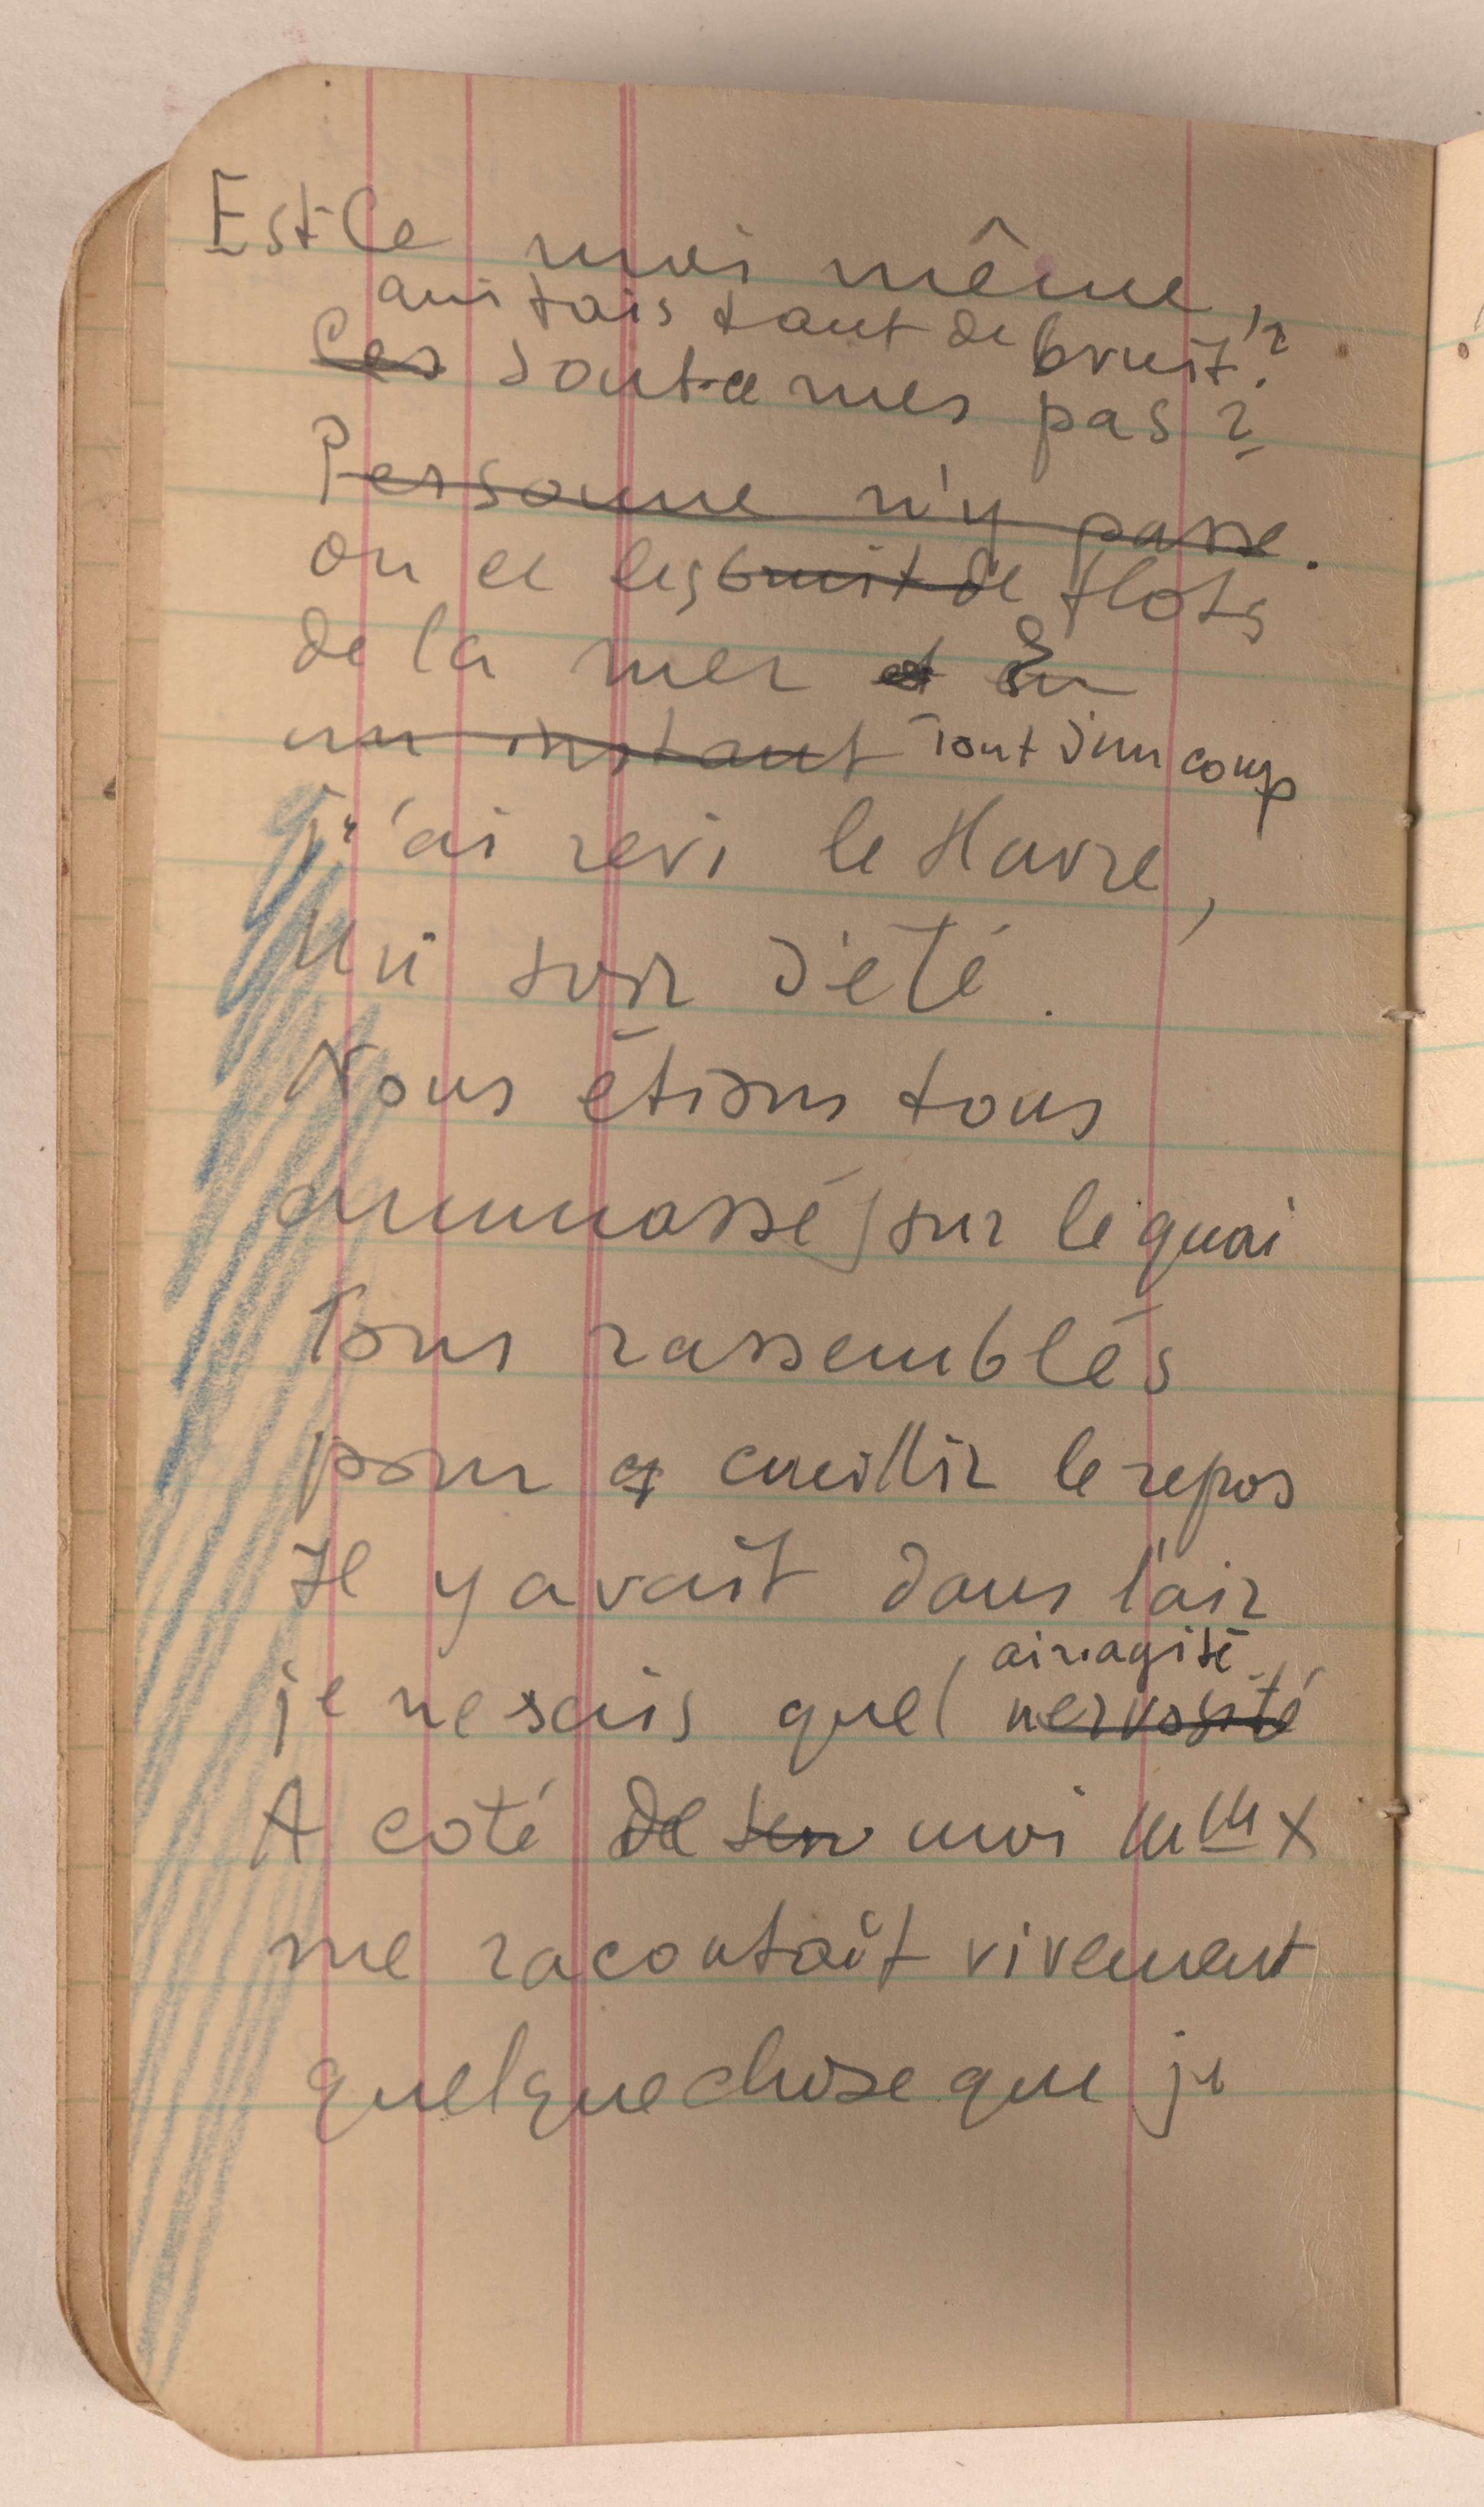 Est Ce moi même,
qui fais tant de bruit?
Ces Sont-ce mes pas?
Personne n'y passe.
ou ce les bruit de flots
de la mer et En
un instant Tout d'un coup
j'ai revi le Havre,
Un soir d'eté.
Nous étions tous
ammassés sur le quai
Tous rassemblés
pour cueillir le repos
Il y avait dans l'air
air agité
je ne sais quel nervosité
A coté de moi Mme X
me racontait vivement
quelque chose que je